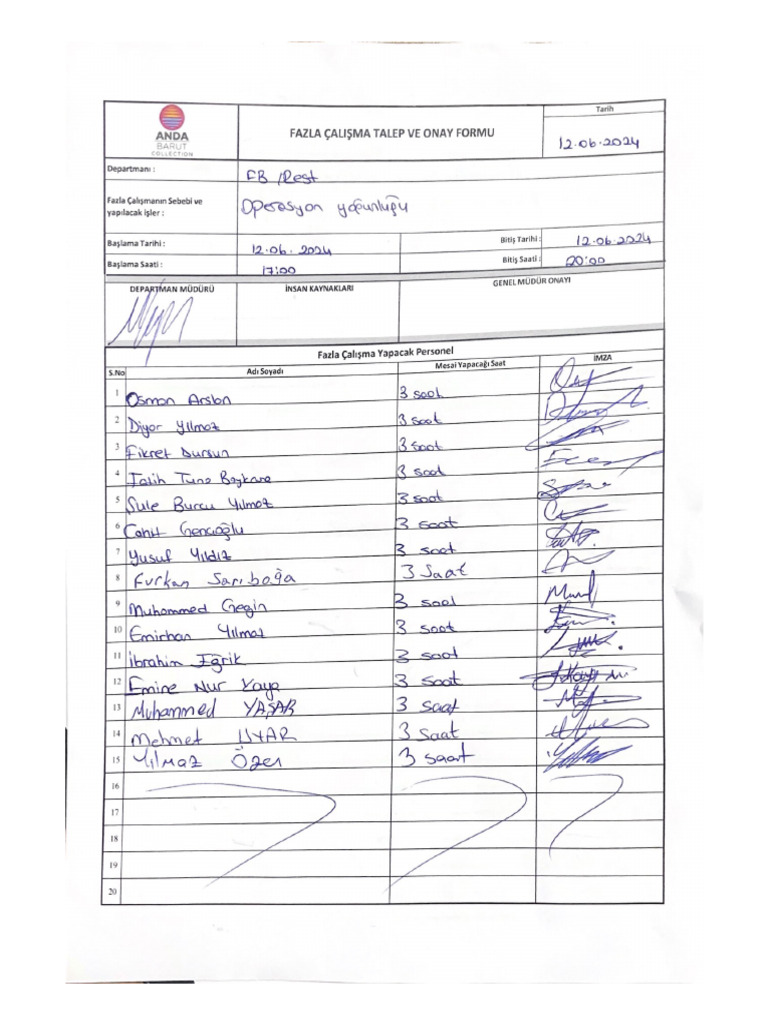 ANDA
BARUT
COLLECTION
FAZLA ÇALIŞMA TALEP VE ONAY FORMU
Tarih
12.06.2024
Departmanı :
FB /Rest
Fazla Çalışmanın Sebebi ve
yapılacak işler :
Operasyon yoğunluğu
Başlama Tarihi :
12.06.2024
Bitiş Tarihi :
12.06.2024
Başlama Saati :
17:00
Bitiş Saati :
20:00
DEPARTMAN MÜDÜRÜ
İNSAN KAYNAKLARI
GENEL MÜDÜR ONAYI
Fazla Çalışma Yapacak Personel
S.No Adı Soyadı Mesai Yapacağı Saat İMZA
1 Osman Arslan 3 saat
2 Diyar Yılmaz 3 saat
3 Fikret Dursun 3 saat
4 Fatih Tuna 3 saat
5 Şule Burcu Yılmaz 3 saat
6 Cahit Gencioğlu 3 saat
7 Yusuf Yıldız 3 saat
8 Furkan Sarıboğa 3 Saat
9 Muhammed Gegin 3 saat
10 Emirhan Yılmaz 3 saat
11 İbrahim Eğrik 3 saat
12 Emine Nur Kaya 3 saat
13 Muhammed YAŞAR 3 saat
14 Mehmet UYAR 3 Saat
15 Yılmaz Özer 3 saat
16
17
18
19
20